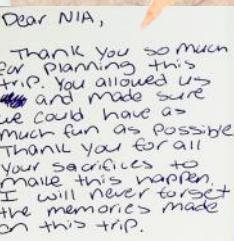 Dear NIA,
Thank you so much
for planning this
trip. You allowed us
and made sure
we could have as
much fun as possible
Thank you for all
your sacrifices to
make this happen.
I will never forget
the memories made
on this trip.